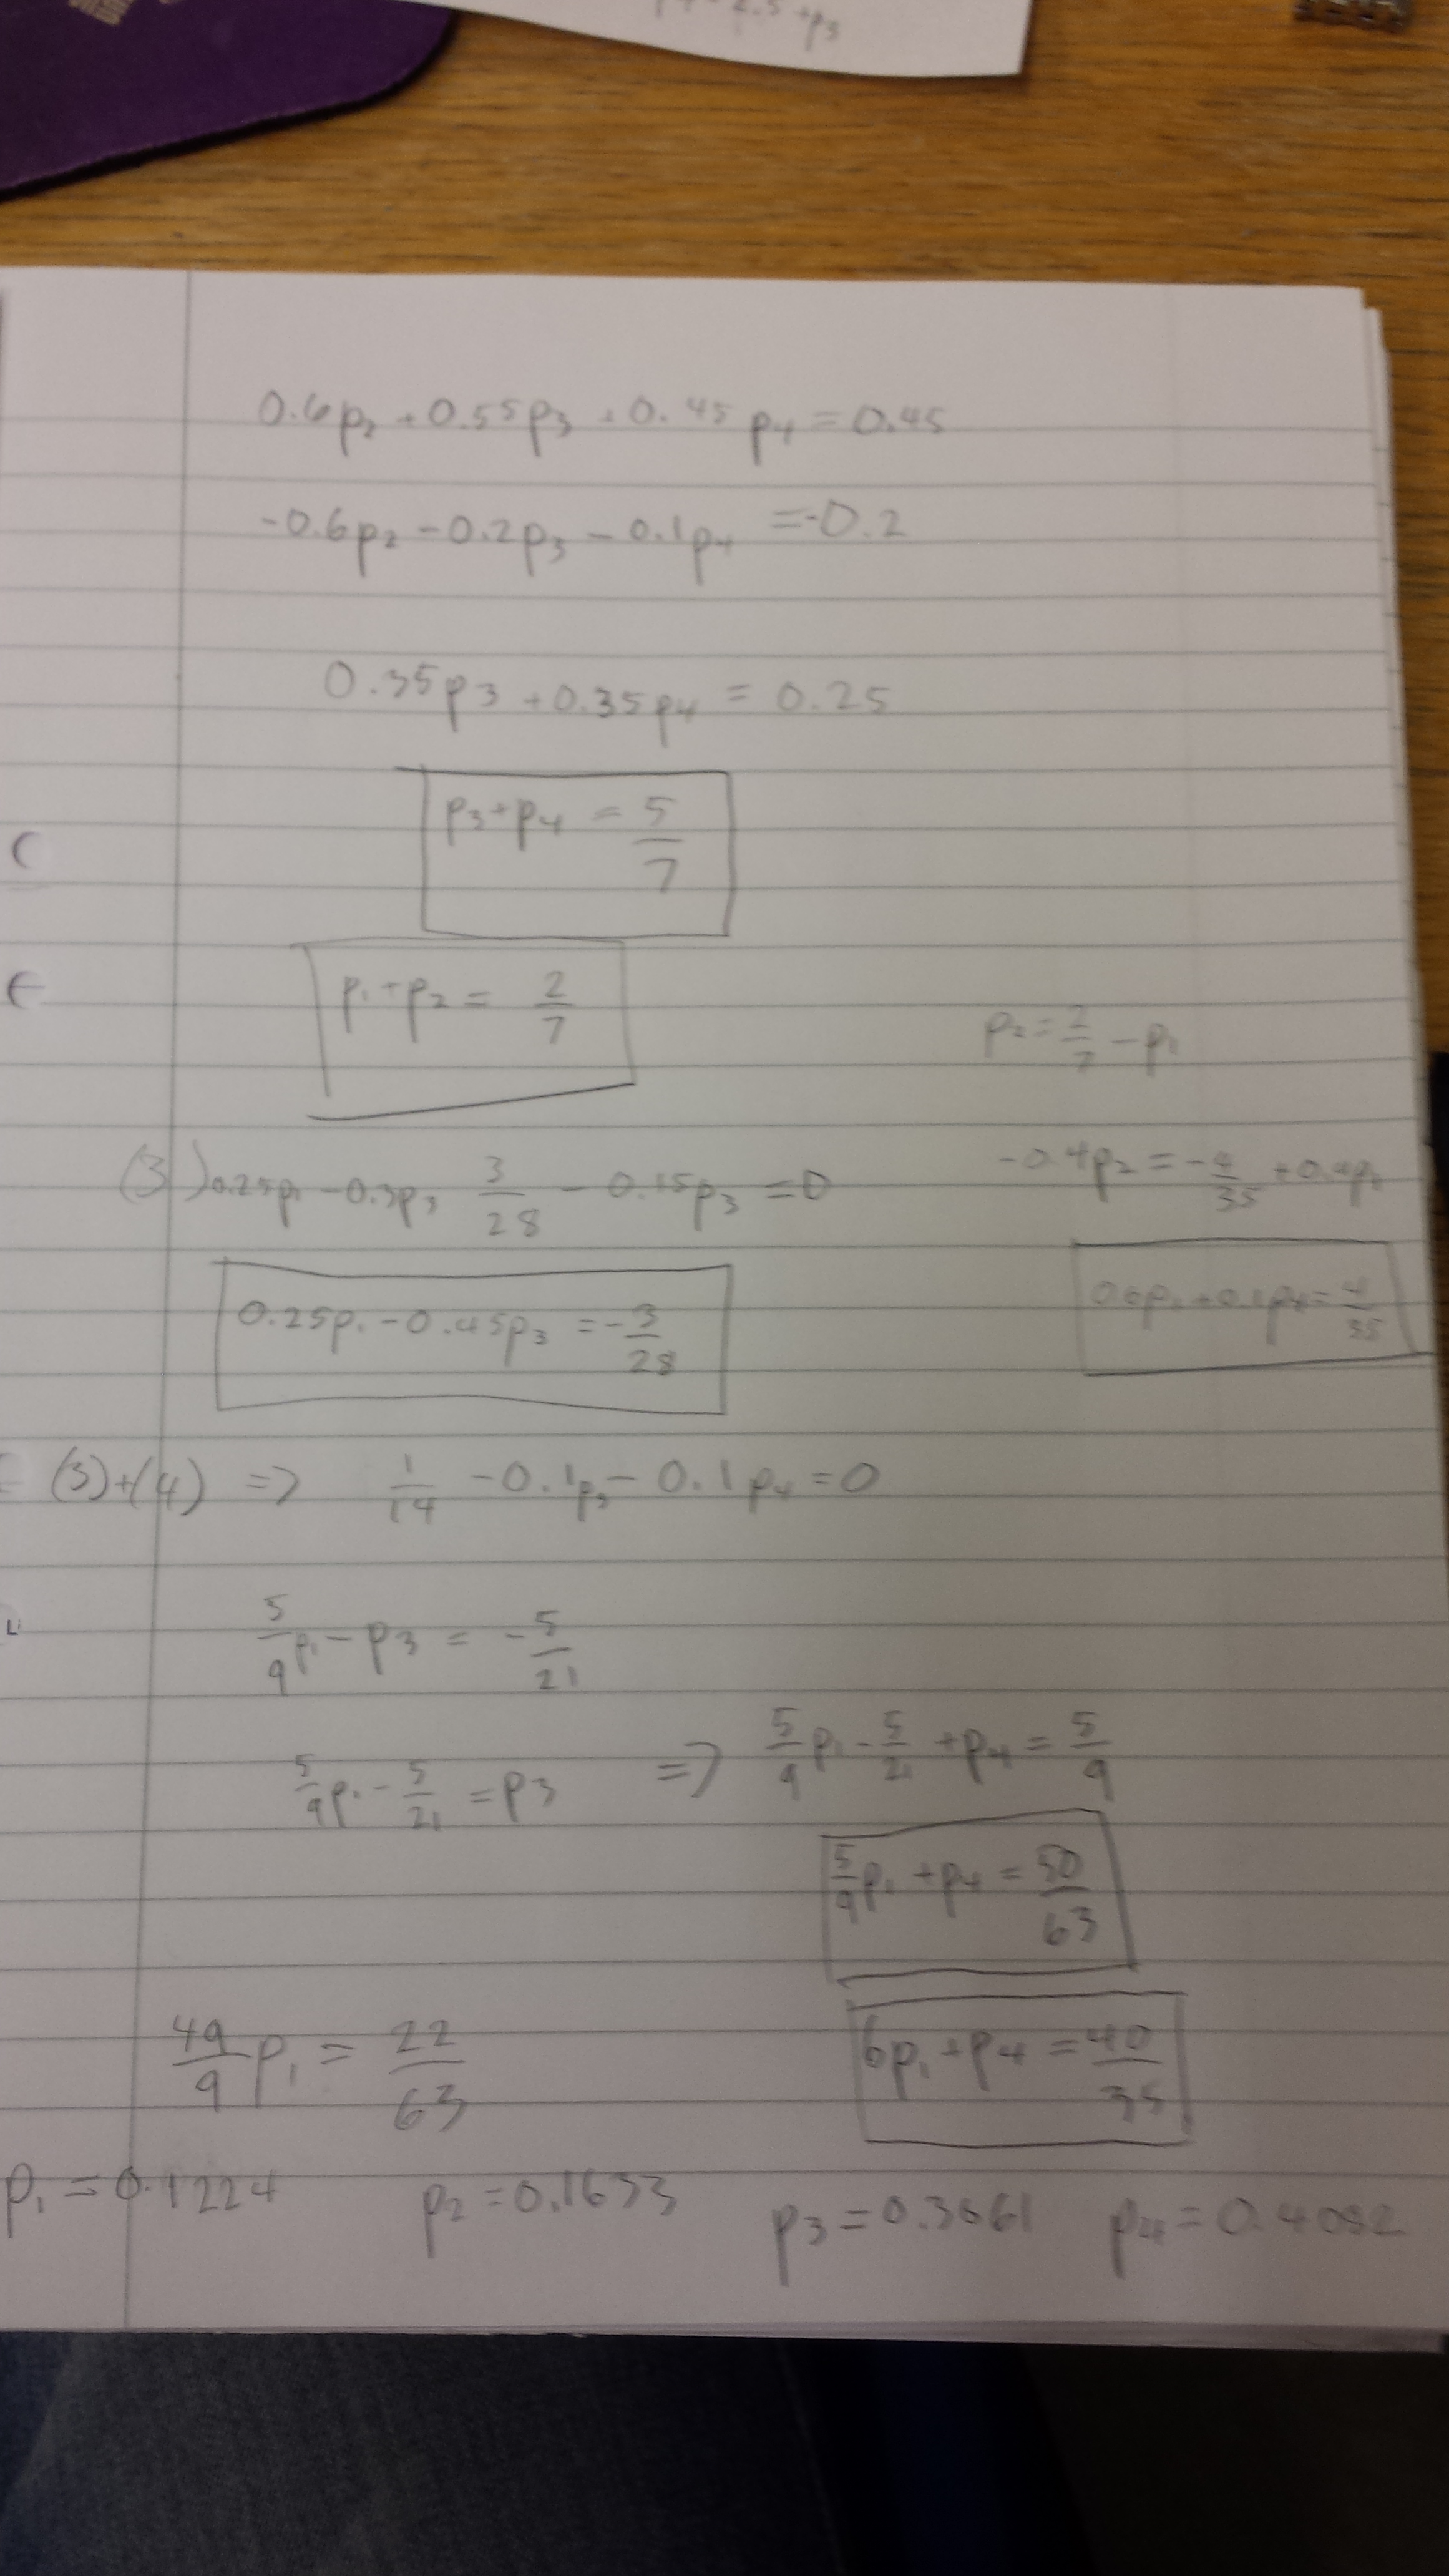 +p3
0.6p2 + 0.55p3 + 0.45p4 = 0.45
-0.6p2 - 0.2p3 - 0.1p4 = -0.2
0.35p3 + 0.35p4 = 0.25
p3 + p4 = 5/7
p1 + p2 = 2/7
p2 = 2/7 - p1
(3) 0.25p1 - 0.3p3 3/28 - 0.15p3 = 0
-0.4p2 = -4/35 + 0.4p1
0.25p1 - 0.45p3 = -3/28
0.6p1 + 0.1p4 = 4/35
(3)+(4) => 1/14 - 0.1p3 - 0.1p4 = 0
5/9p1 - p3 = -5/21
5/9p1 - 5/21 = p3 => 5/9p1 - 5/21 + p4 = 5/9
5/9p1 + p4 = 50/63
49/9p1 = 22/63
6p1 + p4 = 40/35
p1 = 0.1224 p2 = 0.1633 p3 = 0.3061 p4 = 0.4082